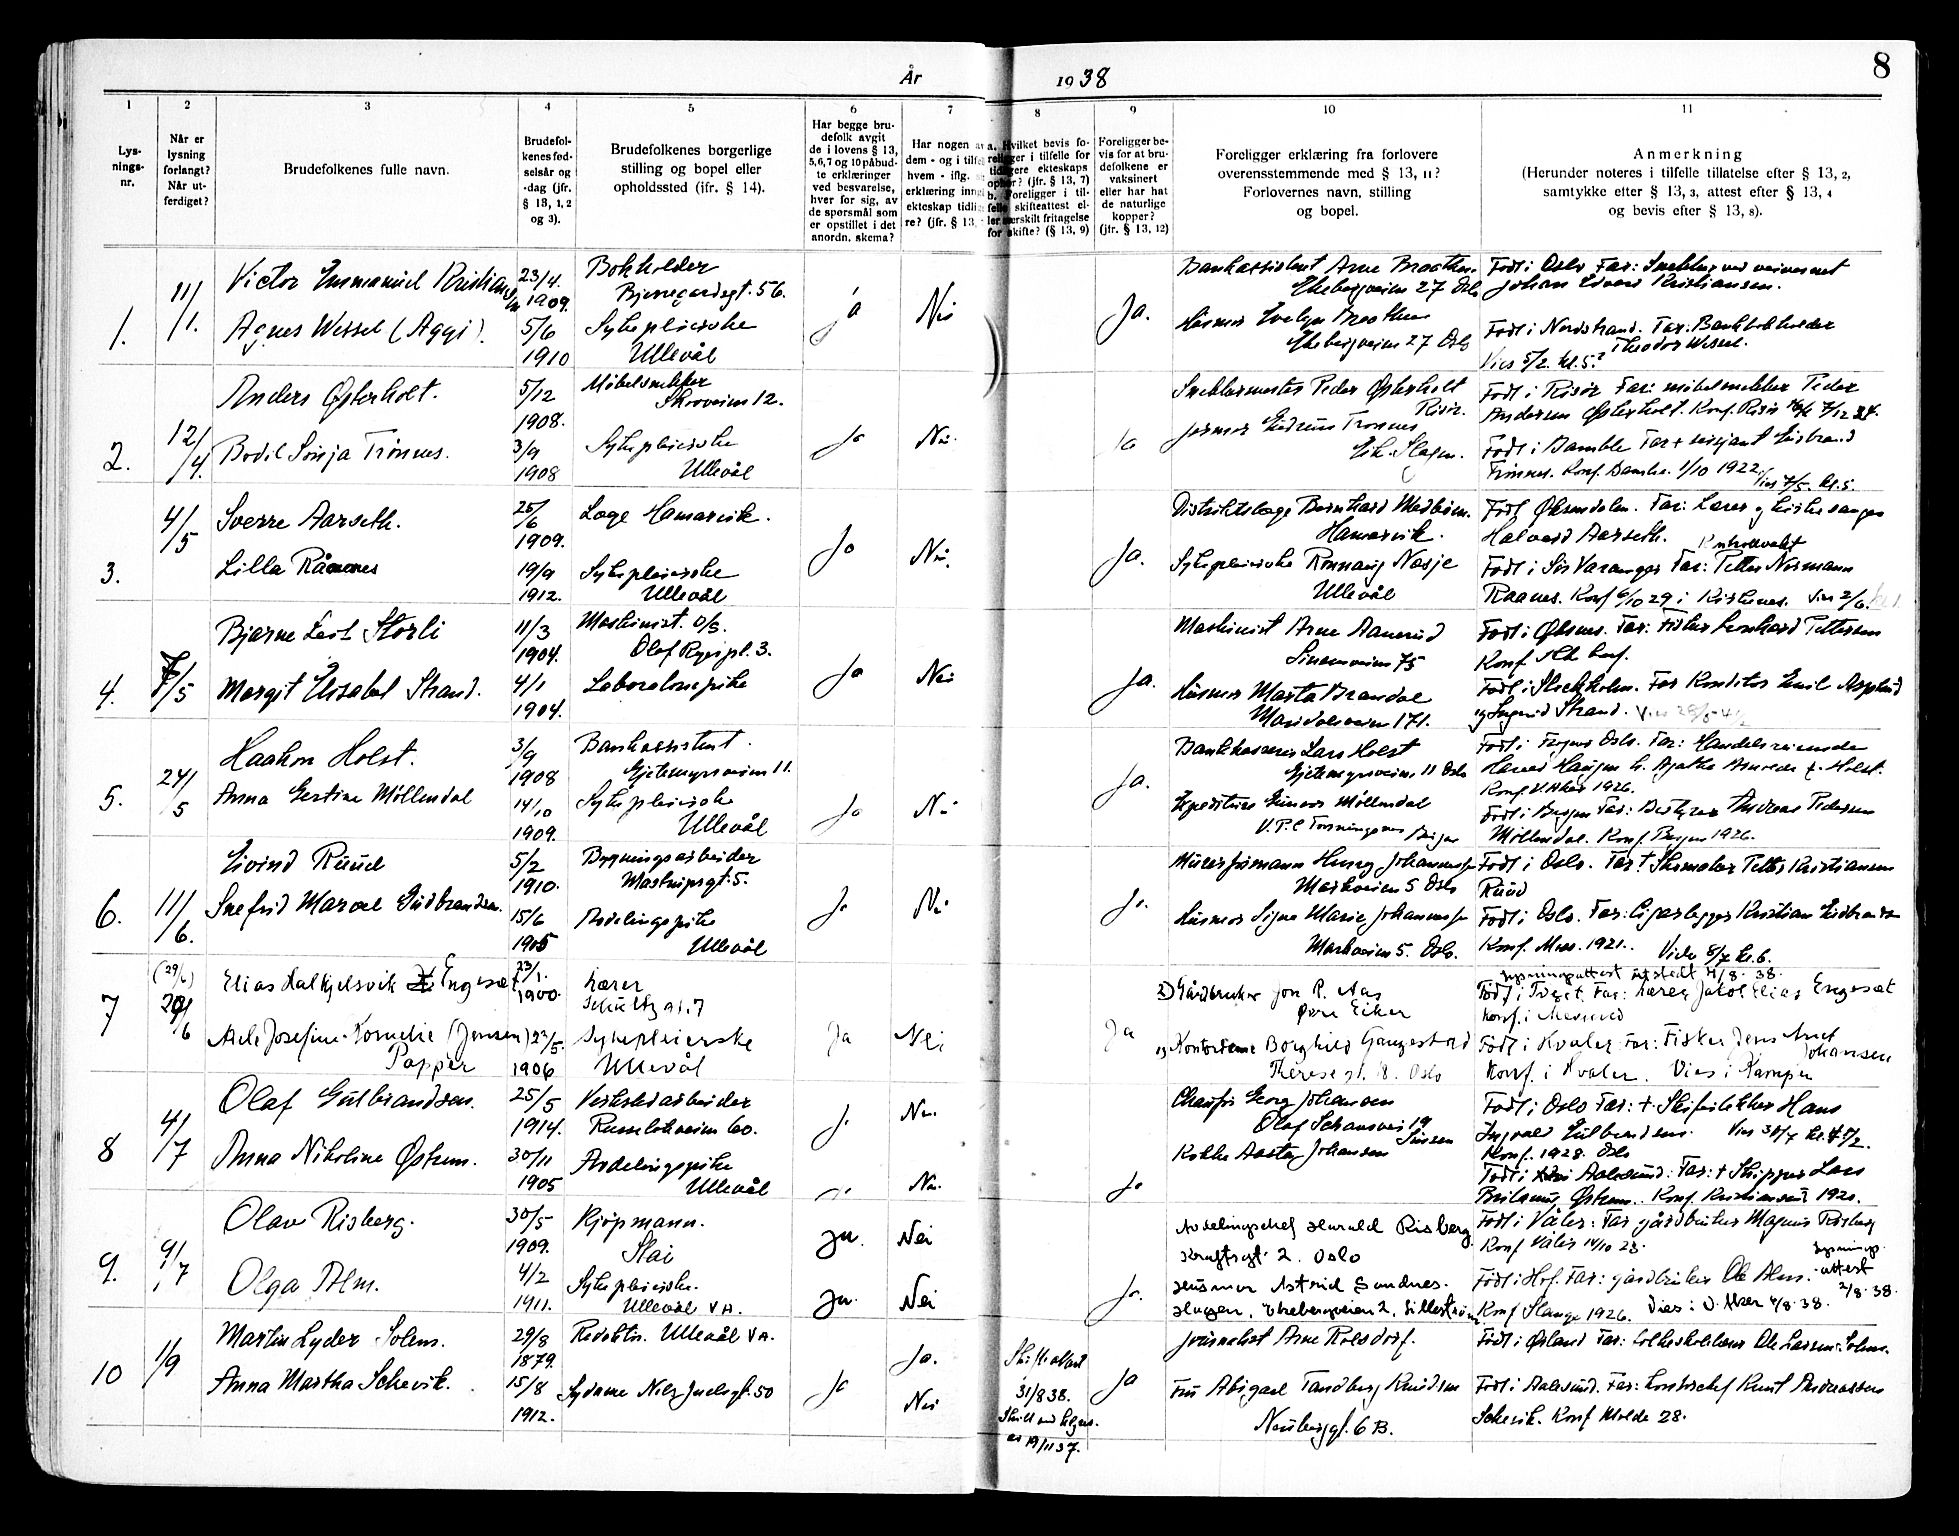 År 1938
8
1 2 3 4 5 6 7 8 9 10 11
Lys-
nings-
nr.
Når er
lysning
forlangt?
Når ut-
ferdiget?
Brudefolkenes fulle navn.
Brudefol-
kenes fød-
selsår og
-dag (jfr.
§ 13, 1, 2
og 3).
Brudefolkenes borgerlige
stilling og bopel eller
opholdssted (ifr. § 14).
Har begge bru-
defolk avgit
de i lovens § 13,
5, 6, 7 og 10 påbud-
te erklæringer
ved besvarelse,
hver for sig, av
de spørsmål som
er opstillet i det
anordn. skema?
Har nogen av
dem - og i tilfel
hvem - iflg.
erklæring inng
ekteskap tidli
re? (jfr. § 13,
a. Hvilket bevis fo-
religger i tilfelle for
tidligere ekteskaps
ophør? (jfr. § 13, 7)
b. Foreligger i til-
felle skifteattest el-
ler særskilt fritagelse
for skifte? (§ 13, 9)
Foreligger be-
vis for at bru-
defolkene er
vaksinert
eller har hat
de naturlige
kopper?
(jfr. § 13, 12)
Foreligger erklæring fra forlovere
overensstemmende med § 13, 11?
Forlovernes navn, stilling
og bopel.
Anmerkning
(Herunder noteres i tilfelle tillatelse efter § 13, 2,
samtykke efter § 13, 3, attest efter § 13, 4
og bevis efter § 13, 8).
1. 11/1. Victor Emmanuel Kristiansen 23/4. 1909. Bokholder
Bjerregaardsgt. 56.
Ja Nei Ja.
Bankassistent Arne Braathen
Ekebergveien 27 Oslo
Født i Oslo Far: Snekker ved veivesenet
Johan Edvard Kristiansen.
Agnes Wessel (Aggi). 5/6 1910 Sykepleierske
Ullevål
Husmor Evelyn Braathen
Ekebergveien 27 Oslo
Født i Nordstrand. Far: Bankbokholder
Theodor Wessel.
Vies 5/2. kl. 5.
2. 12/4. Anders Østerholt. 5/12 1908. Møbelsnekker
Skoveien 12.
Ja Nei. Ja
Snekkermester Peder Østerholt
Risør.
Født i Risør Far: møbelsnekker Peder
Andersen Østerholt. Konf. Risør
Bodil Sonja Trønnes. 3/9 1908 Sykepleierske
Ullevål
Gudrun Tronnes
Eik. Slagen.
Født i Bamble Far + sersjant Gudbrand
Trønnes. Konf. Bamble. 1/10 1922. Vies 7/5. kl. 5.
3. 4/5 Sverre Aarseth. 25/6 1909. Læge Hamarvik.
Ja Nei. Ja.
Distriktslæge Bernhard
Hamarvik.
Født Øksendalen. Far: Lærer og kirkesanger
Halvard Aarseth.
Lilla Råannes 19/9 1912. Sykepleierske
Ullevål
Sykepleierske Rønnaug Nasje
Ullevål
Kontrollvakt
Født i Sør Varanger Far: Petter Normann
Raanes. Konf 6/10 29 i Kirkenes. Vies 2/6.
4. 7/5 Bjarne Leif Storli 11/3 1904. Maskinist. O/S.
Olaf Ryes pl. 3.
Ja Nei Ja.
Maskinist Arne Aanerud
Sinsenveien 75
Født i Øksnes. Far: Fisker Leonhard Pettersen
Margit Elisabet Strand. 4/1 1904. Laboratoriepike
Husmor Marta Brandal
Maridalsveien 171.
Født i Stockholm. Far Konditor Emil Asplund
og Ingrid Strand.
5. 24/5 Haakon Holst. 3/9 1908 Bankassistent.
Gjetemyrsveien 11.
Ja Nei Ja.
Bankkasserer Lars Holst
Gjetemyrsveien 11 Oslo
Født i Oslo. Far: Handelsreisende
Konf. V. Aker 1926.
Anna Gertine Möllendal 14/10 1909. Sykepleierske
Ullevål
Gunnar Möllendal
Født i Bergen Far: Bestyrer Andreas Pedersen
Möllendal. Konf. Bergen 1926.
6. 11/6. Eivind Ruud 5/2 1910. Bygningsarbeider
Ja Nei Ja.
Murerformann Henry Johannessen
Markveien 5 Oslo
Født i Oslo. Far + Skomaker Petter Kristiansen
Ruud
Snefrid Marie Gudbrandsen. 15/6 1905 Avdelingspike
Ullevål
Husmor Signe Marie Johannessen
Markveien 5. Oslo.
Født i Oslo. Far: Cigarlegger Kristian Gudbrandsen
Konf. 1921. Vies 8/7 kl. 6.
7 (29/6) 29/6 Elias Halkjelsvik Engeset 23/1. 1900. Lærer
Schultz gt. 7
Ja Nei Ja
2) Gårdbruker Jon R. Aas
Øvre Eiker
Lysningsattest utstedt 4/8. 38.
Far: Lærer Jakob Elias Engeset
Adele Josefine Kornelie (Jensen) 22/5. 1906 Sykepleierske
Popper Ullevål
1) Kontordame Borghild Gangestad
Therese gt. 8. Oslo
Født i Kvaler Far: Fisker Jens Johansen
Konf. i Kvaler. Vies i Kamper
8 4/7 Olaf Gulbrandsen. 25/5 1914. Verkstedarbeider
Russeløkveien 60.
Ja Nei. Ja
Chauffør Georg Johansen
Olaf Schousvei 19
Sinsen
Født i Oslo Far: + Skifabrikker Hans
Ingvald Gulbrandsen. Vies 30/7
Konf. 1928. Oslo
Anna Nikoline Østrem. 30/11 1905 Avdelingspike
Ullevål
Nei.
Kokke Aasta Johansen
Født i Aalesund. Far: + Skipper Lars
Østrem. Konf. Kristiansund 1920.
9. 9/7 Olav Risberg. 30/5 1909. Kjøpmann.
Stai
Ja. Nei
Avdelingschef Harald Risberg.
Kruftsgt. 2. Oslo
Født i Våler: Far gårdbruker Magnus Risberg
Konf Våler 14/10 23.
Olga Alm. 4/2 1911. Sykepleierske.
Ullevål V.A.
Ja. Nei Ja.
Husmor Astrid Sandnes.
Haugen, Ekebergveien 2, Lillestrøm
Født i Hof. Far: gårdbruker Ole Alm.
Konf Stange 1926. Vies i V. Aker 4/8. 38.
Lysnings-
attest
2/8. 38.
10 1/9 Martin Lyder Solem. 29/8 1879. Redaktør. Ullevål V.A.
Ja.
Skifteattest
31/8 38.
Ja
Journalist Arne Rolsdorf.
Født i Ørland Far: Ole Larsen Solem.
Anna Martha Schevik. 15/8 1912. Sydame Niels Juelsgt. 50
Ja Nei
19/11 37.
Fru Abigael Tandberg Knudsen
Neubergg. 6 B.
Født i Aalesund. Far: Kontorchef Knut Andreassen
Schevik. Konf Molde 28.